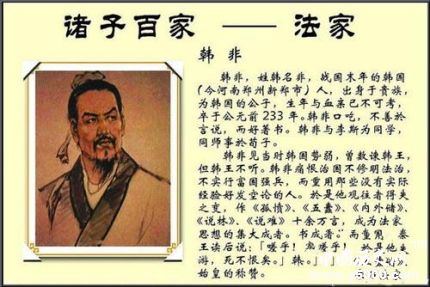 诸子百家 —— 法家
韩 非
韩非，姓韩名非，战国末年的韩国
（今河南郑州新郑市）人，出身于贵族，
为韩国的公子，生年与血亲已不可考，
卒于公元前 233 年。韩非口吃，不善於
言说，而好著书。韩非与李斯为同学，
同师事於荀子。
韩非见当时韩国势弱，曾数谏韩王，
但韩王不听。韩非痛恨治国不修明法治，
不实行富国强兵，而重用那些没有实际
经验好发空论的人。於是他观往者得失
之变，作《孤愤》、《五蠹》、《内外储》、
《说林》、《说难》十余万言，成为法家
思想的集大成者。书成
王读后说：「嗟乎！
游，死不恨矣。」韩
始皇的称赞。